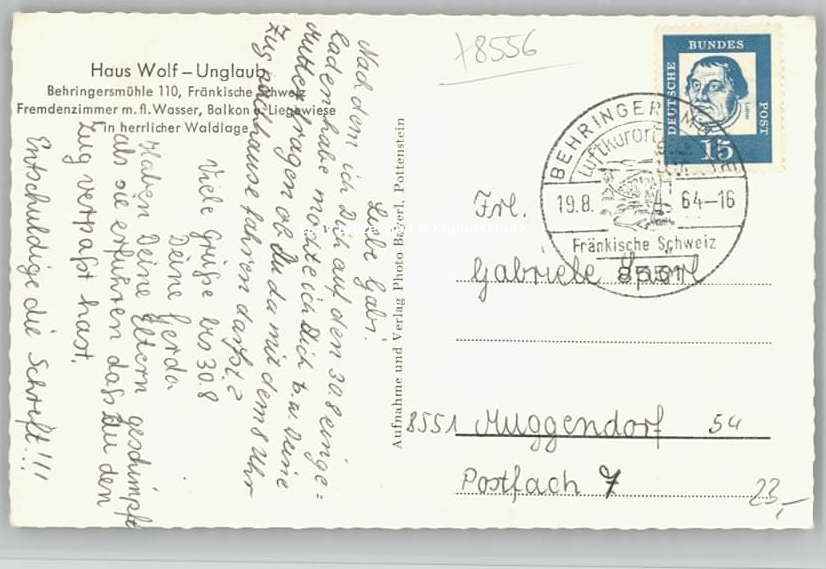 Haus Wolf – Unglaub
Behringersmühle 110, Fränkische Schweiz
Fremdenzimmer m. fl. Wasser, Balkon u. Liegewiese
in herrlicher Waldlage
Liebe Gabi.
Nachdem ich Dich auf den 30.8 einge=
laden habe möchte ich Dich b.z. Deine
Mutter fragen ob Du da mit dem 8 Uhr
Zug nachhause fahren darfst?
Viele Grüße bis 30.8
Deine Gerda
Haben Deine Eltern geschimpft
als sie erfuhren daß Du den
Zug verpaßt hast.
Entschuldige die Schrift!!!
Aufnahme und Verlag Photo Bayerl, Pottenstein
8556
DEUTSCHE
BUNDES
POST
Luther
15
BEHRINGERSM
Luftkurort
19.8. 64–16
Fränkische Schweiz
8551
Frl.
Gabriele
8551 Muggendorf 54
Postfach 7
23,-
© Kopierschutz